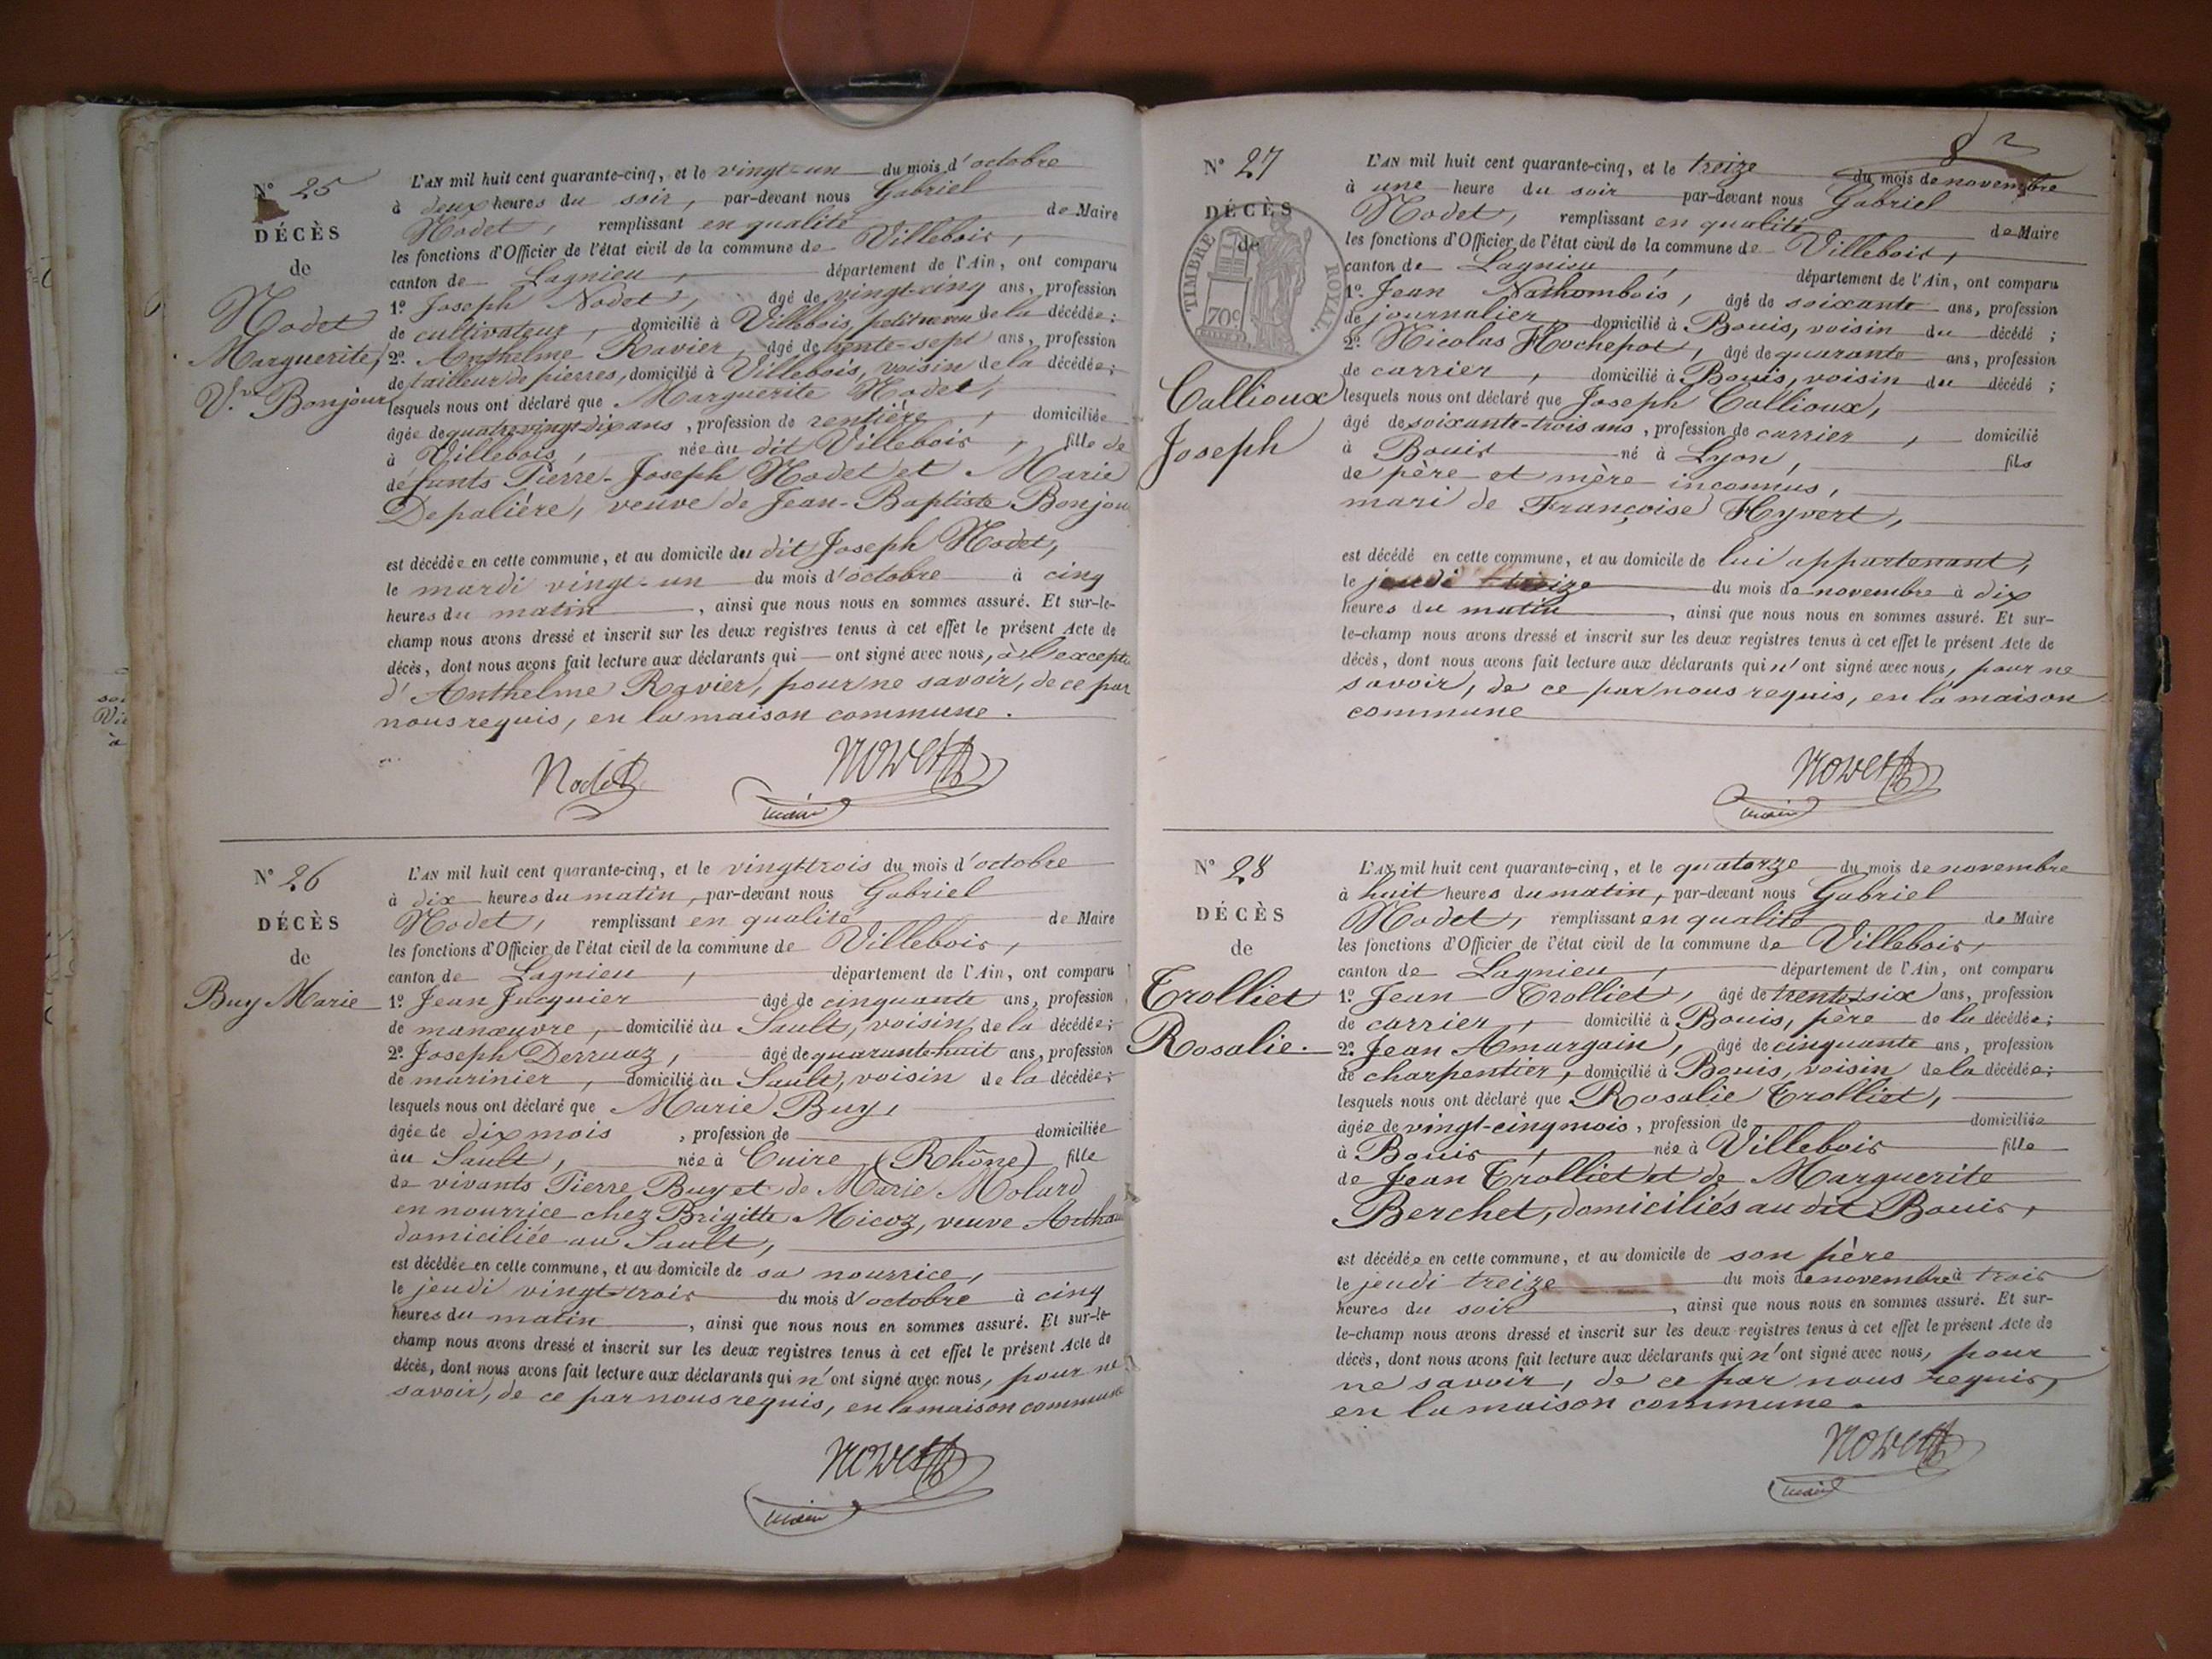 N° 25
DÉCÈS
de
Nodet
Marguerite,
V.ve Bonjour
L'AN mil huit cent quarante-cinq, et le vingt-un du mois d'octobre
à deux heures du soir, par-devant nous Gabriel
Nodet, remplissant en qualité de Maire
les fonctions d'Officier de l'état civil de la commune de Villebois,
canton de Lagnieu, département de l'Ain, ont comparu
1°. Joseph Nodet, âgé de vingt-cinq ans, profession
de cultivateur, domicilié à Villebois, petit neveu de la décédée;
2°. Anthelme Ravier, âgé de trente-sept ans, profession
de tailleur de pierres, domicilié à Villebois, voisin de la décédée;
lesquels nous ont déclaré que Marguerite Nodet,
âgée de quatre-vingt-dix ans, profession de rentière, domiciliée
à Villebois, née au dit Villebois, fille de
défunts Pierre-Joseph Nodet et Marie
Depalière, veuve de Jean-Baptiste Bonjou
est décédée en cette commune, et au domicile du dit Joseph Nodet,
le mardi vingt-un du mois d'octobre à cinq
heures du matin, ainsi que nous nous en sommes assuré. Et sur-le-
champ nous avons dressé et inscrit sur les deux registres tenus à cet effet le présent Acte de
décès, dont nous avons fait lecture aux déclarants qui ont signé avec nous, à l'excepti
d'Anthelme Ravier, pour ne savoir, de ce par
nous requis, en la maison commune.
Nodet
NODET
maire
N° 26
DÉCÈS
de
Buy Marie
L'AN mil huit cent quarante-cinq, et le vingt-trois du mois d'octobre
à dix heures du matin, par-devant nous Gabriel
Nodet, remplissant en qualité de Maire
les fonctions d'Officier de l'état civil de la commune de Villebois,
canton de Lagnieu, département de l'Ain, ont comparu
1°. Jean Jacquier âgé de cinquante ans, profession
de manœuvre, domicilié au Sault, voisin de la décédée;
2°. Joseph Derruaz, âgé de quarante-huit ans, profession
de marinier, domicilié au Sault, voisin de la décédée;
lesquels nous ont déclaré que Marie Buy,
âgée de dix mois, profession de domiciliée
au Sault, née à Cuire (Rhône) fille
de vivants Pierre Buy et de Marie Molard
en nourrice chez Brigitte Micoz, veuve
domiciliée au Sault,
est décédée en cette commune, et au domicile de sa nourrice,
le jeudi vingt-trois du mois d'octobre à cinq
heures du matin, ainsi que nous nous en sommes assuré. Et sur-le-
champ nous avons dressé et inscrit sur les deux registres tenus à cet effet le présent Acte de
décès, dont nous avons fait lecture aux déclarants qui n'ont signé avec nous, pour ne
savoir, de ce par nous requis, en la maison commune
NODET
maire
82
N° 27
DÉCÈS
de
TIMBRE ROYAL.
70c
Callioux
Joseph
L'AN mil huit cent quarante-cinq, et le treize du mois de novembre
à une heure du soir par-devant nous Gabriel
Nodet, remplissant en qualité de Maire
les fonctions d'Officier de l'état civil de la commune de Villebois,
canton de Lagnieu, département de l'Ain, ont comparu
1°. Jean Nathombois, âgé de soixante ans, profession
de journalier, domicilié à Bouis, voisin du décédé;
2°. Nicolas Hochepot, âgé de quarante ans, profession
de carrier, domicilié à Bouis, voisin du décédé;
lesquels nous ont déclaré que Joseph Callioux,
âgé de soixante-trois ans, profession de carrier, domicilié
à Bouis né à Lyon, fils
de père et mère inconnus,
mari de Françoise Hyvert,
est décédé en cette commune, et au domicile de lui appartenant,
le jeudi treize du mois de novembre à dix
heures du matin, ainsi que nous nous en sommes assuré. Et sur-
le-champ nous avons dressé et inscrit sur les deux registres tenus à cet effet le présent Acte de
décès, dont nous avons fait lecture aux déclarants qui n'ont signé avec nous, pour ne
savoir, de ce par nous requis, en la maison
commune
NODET
maire
N° 28
DÉCÈS
de
Trolliet
Rosalie.
L'AN mil huit cent quarante-cinq, et le quatorze du mois de novembre
à huit heures du matin, par-devant nous Gabriel
Nodet, remplissant en qualité de Maire
les fonctions d'Officier de l'état civil de la commune de Villebois,
canton de Lagnieu, département de l'Ain, ont comparu
1°. Jean Trolliet, âgé de trente-six ans, profession
de carrier, domicilié à Bouis, père de la décédée;
2°. Jean Amargain, âgé de cinquante ans, profession
de charpentier, domicilié à Bouis, voisin de la décédée;
lesquels nous ont déclaré que Rosalie Trolliet,
âgée de vingt-cinq mois, profession de domiciliée
à Bouis, née à Villebois fille
de Jean Trolliet et de Marguerite
Berchet, domiciliés au dit Bouis,
est décédée en cette commune, et au domicile de son père
le jeudi treize du mois de novembre à trois
heures du soir, ainsi que nous nous en sommes assuré. Et sur-
le-champ nous avons dressé et inscrit sur les deux registres tenus à cet effet le présent Acte de
décès, dont nous avons fait lecture aux déclarants qui n'ont signé avec nous, pour
ne savoir, de ce par nous requis,
en la maison commune.
NODET
maire